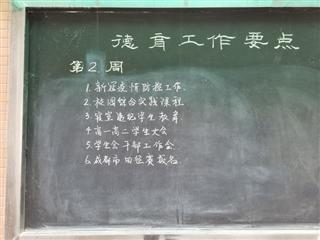 德育工作要点
第2周
1. 新冠疫情防控工作.
2. 校园综合实践课程
3. 寝室违纪学生教育
4. 高一高二学生大会
5. 学生会干部工作会
6. 成都市田径赛报名